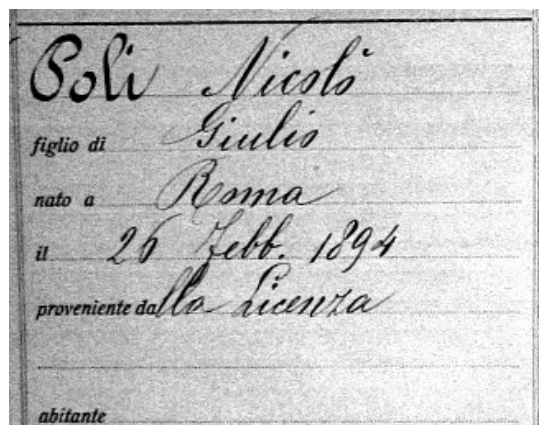 Poli Nicolò
figlio di Giulio
nato a Roma
il 26 Febb. 1894
proveniente dalla Licenza
abitante